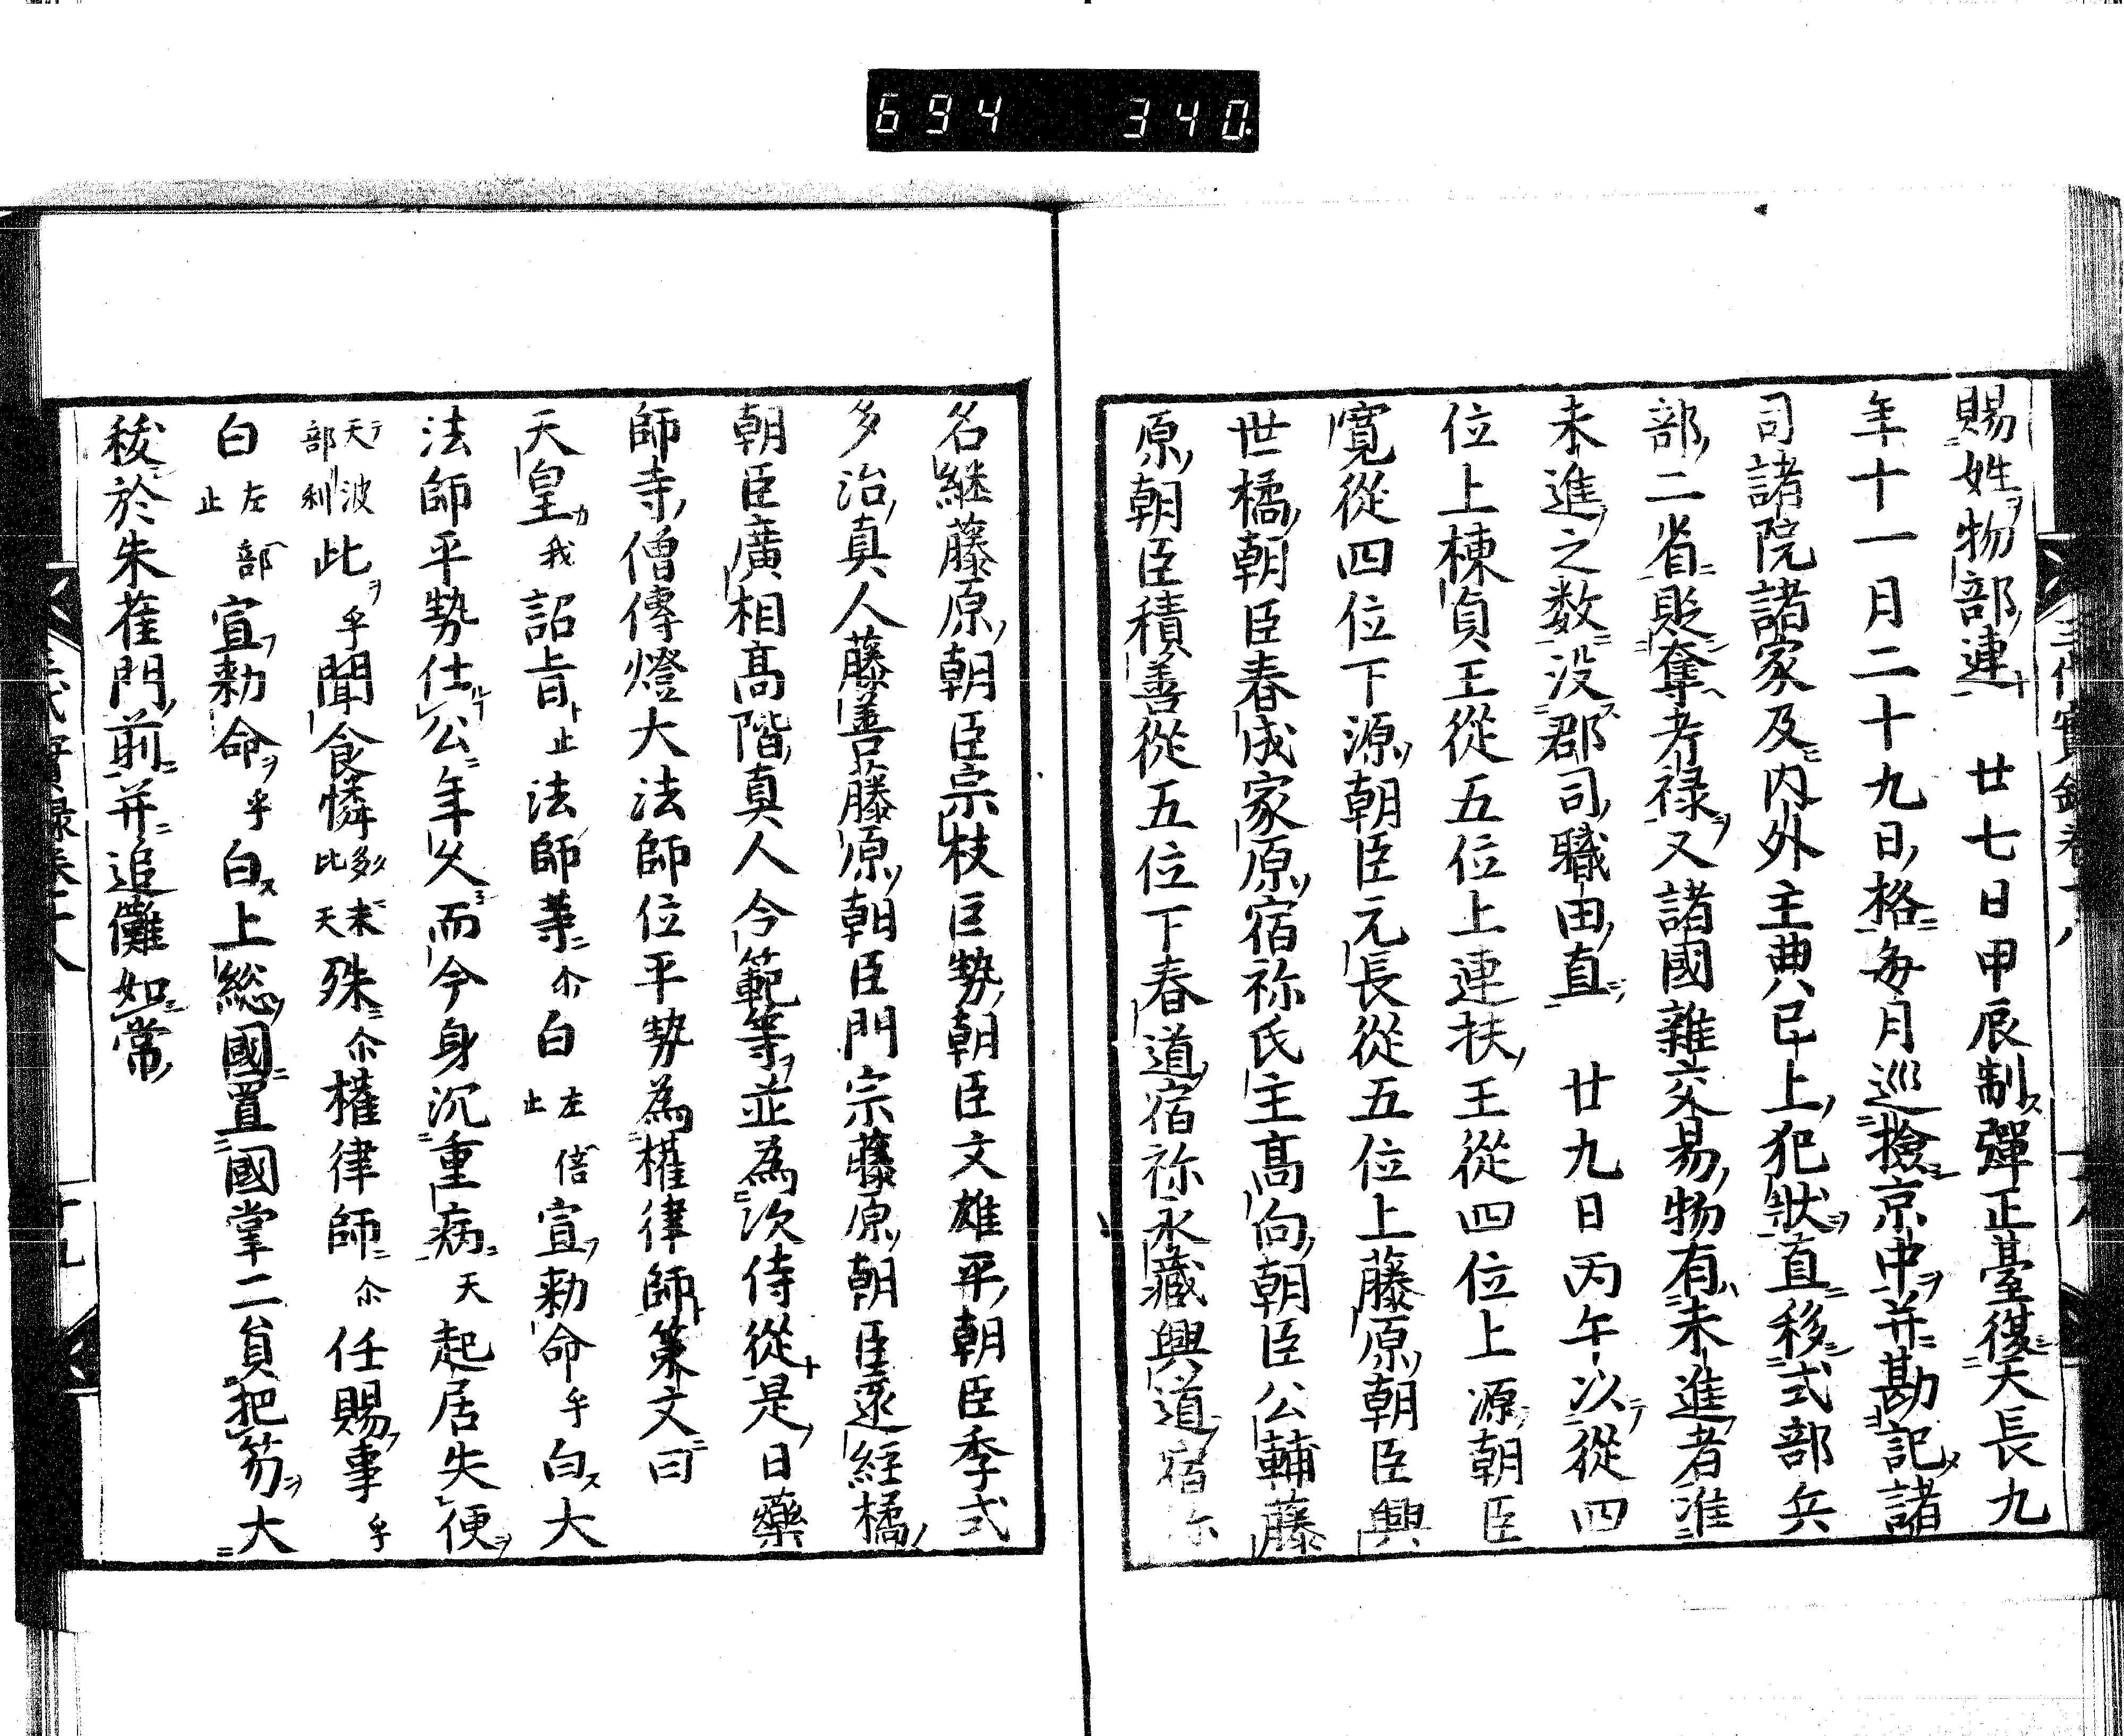 694 340
賜姓物部連 廿七日甲辰制彈正臺復天長九
年十一月二十九日格毎月巡撿京中并勘記諸
司諸院諸家及内外主典已上犯狀直移式部兵
部二省貶奪考禄又諸國雜交易物有未進者准
未進之数没郡司職田直 廿九日丙午以從四
位上棟貞王從五位上連扶王從四位上源朝臣
寛從四位下源朝臣元長從五位上藤原朝臣興
世橘朝臣春成家原宿祢氏主高向朝臣公輔藤
原朝臣積善從五位下春道宿祢永藏興道宿祢
名継藤原朝臣宗枝巨勢朝臣文雄平朝臣季式
多治真人藤善藤原朝臣門宗藤原朝臣遠経橘
朝臣廣相高階真人今範等並為次侍從是日藥
師寺僧傳燈大法師位平勢為權律師策文曰
天皇我詔旨止法師等尓白左止倍宣勅命乎白大
法師平勢仕公年久而今身沉重病天起居失便
天波部利此乎聞食憐多比未天殊尓權律師尓任賜事乎
白左止部宣勅命乎白上総國置國掌二貟把笏大
秡於朱雀門前并追儺如常